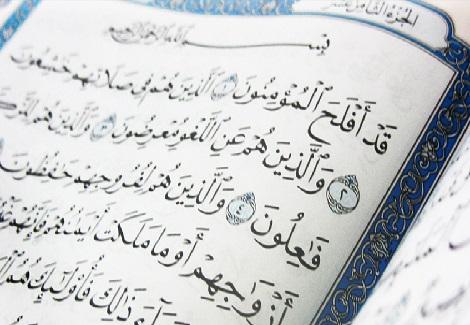 الجزء الثامن عشر
بِسْمِ ٱللَّهِ ٱلرَّحْمَٰنِ ٱلرَّحِيمِ
قَدْ أَفْلَحَ ٱلْمُؤْمِنُونَ ١ ٱلَّذِينَ هُمْ فِى صَلَاتِهِمْ خَٰشِعُونَ
٢ وَٱلَّذِينَ هُمْ عَنِ ٱللَّغْوِ مُعْرِضُونَ ٣ وَٱلَّذِينَ هُمْ لِلزَّكَ
فَٰعِلُونَ ٤ وَٱلَّذِينَ هُمْ لِفُرُوجِهِمْ حَٰفِظُونَ
أَزْوَٰجِهِمْ أَوْ مَا مَلَكَتْ أَيْمَٰنُهُمْ فَإِنَّهُمْ
ذَٰلِكَ فَأُو۟لَٰٓئِكَ هُمُ